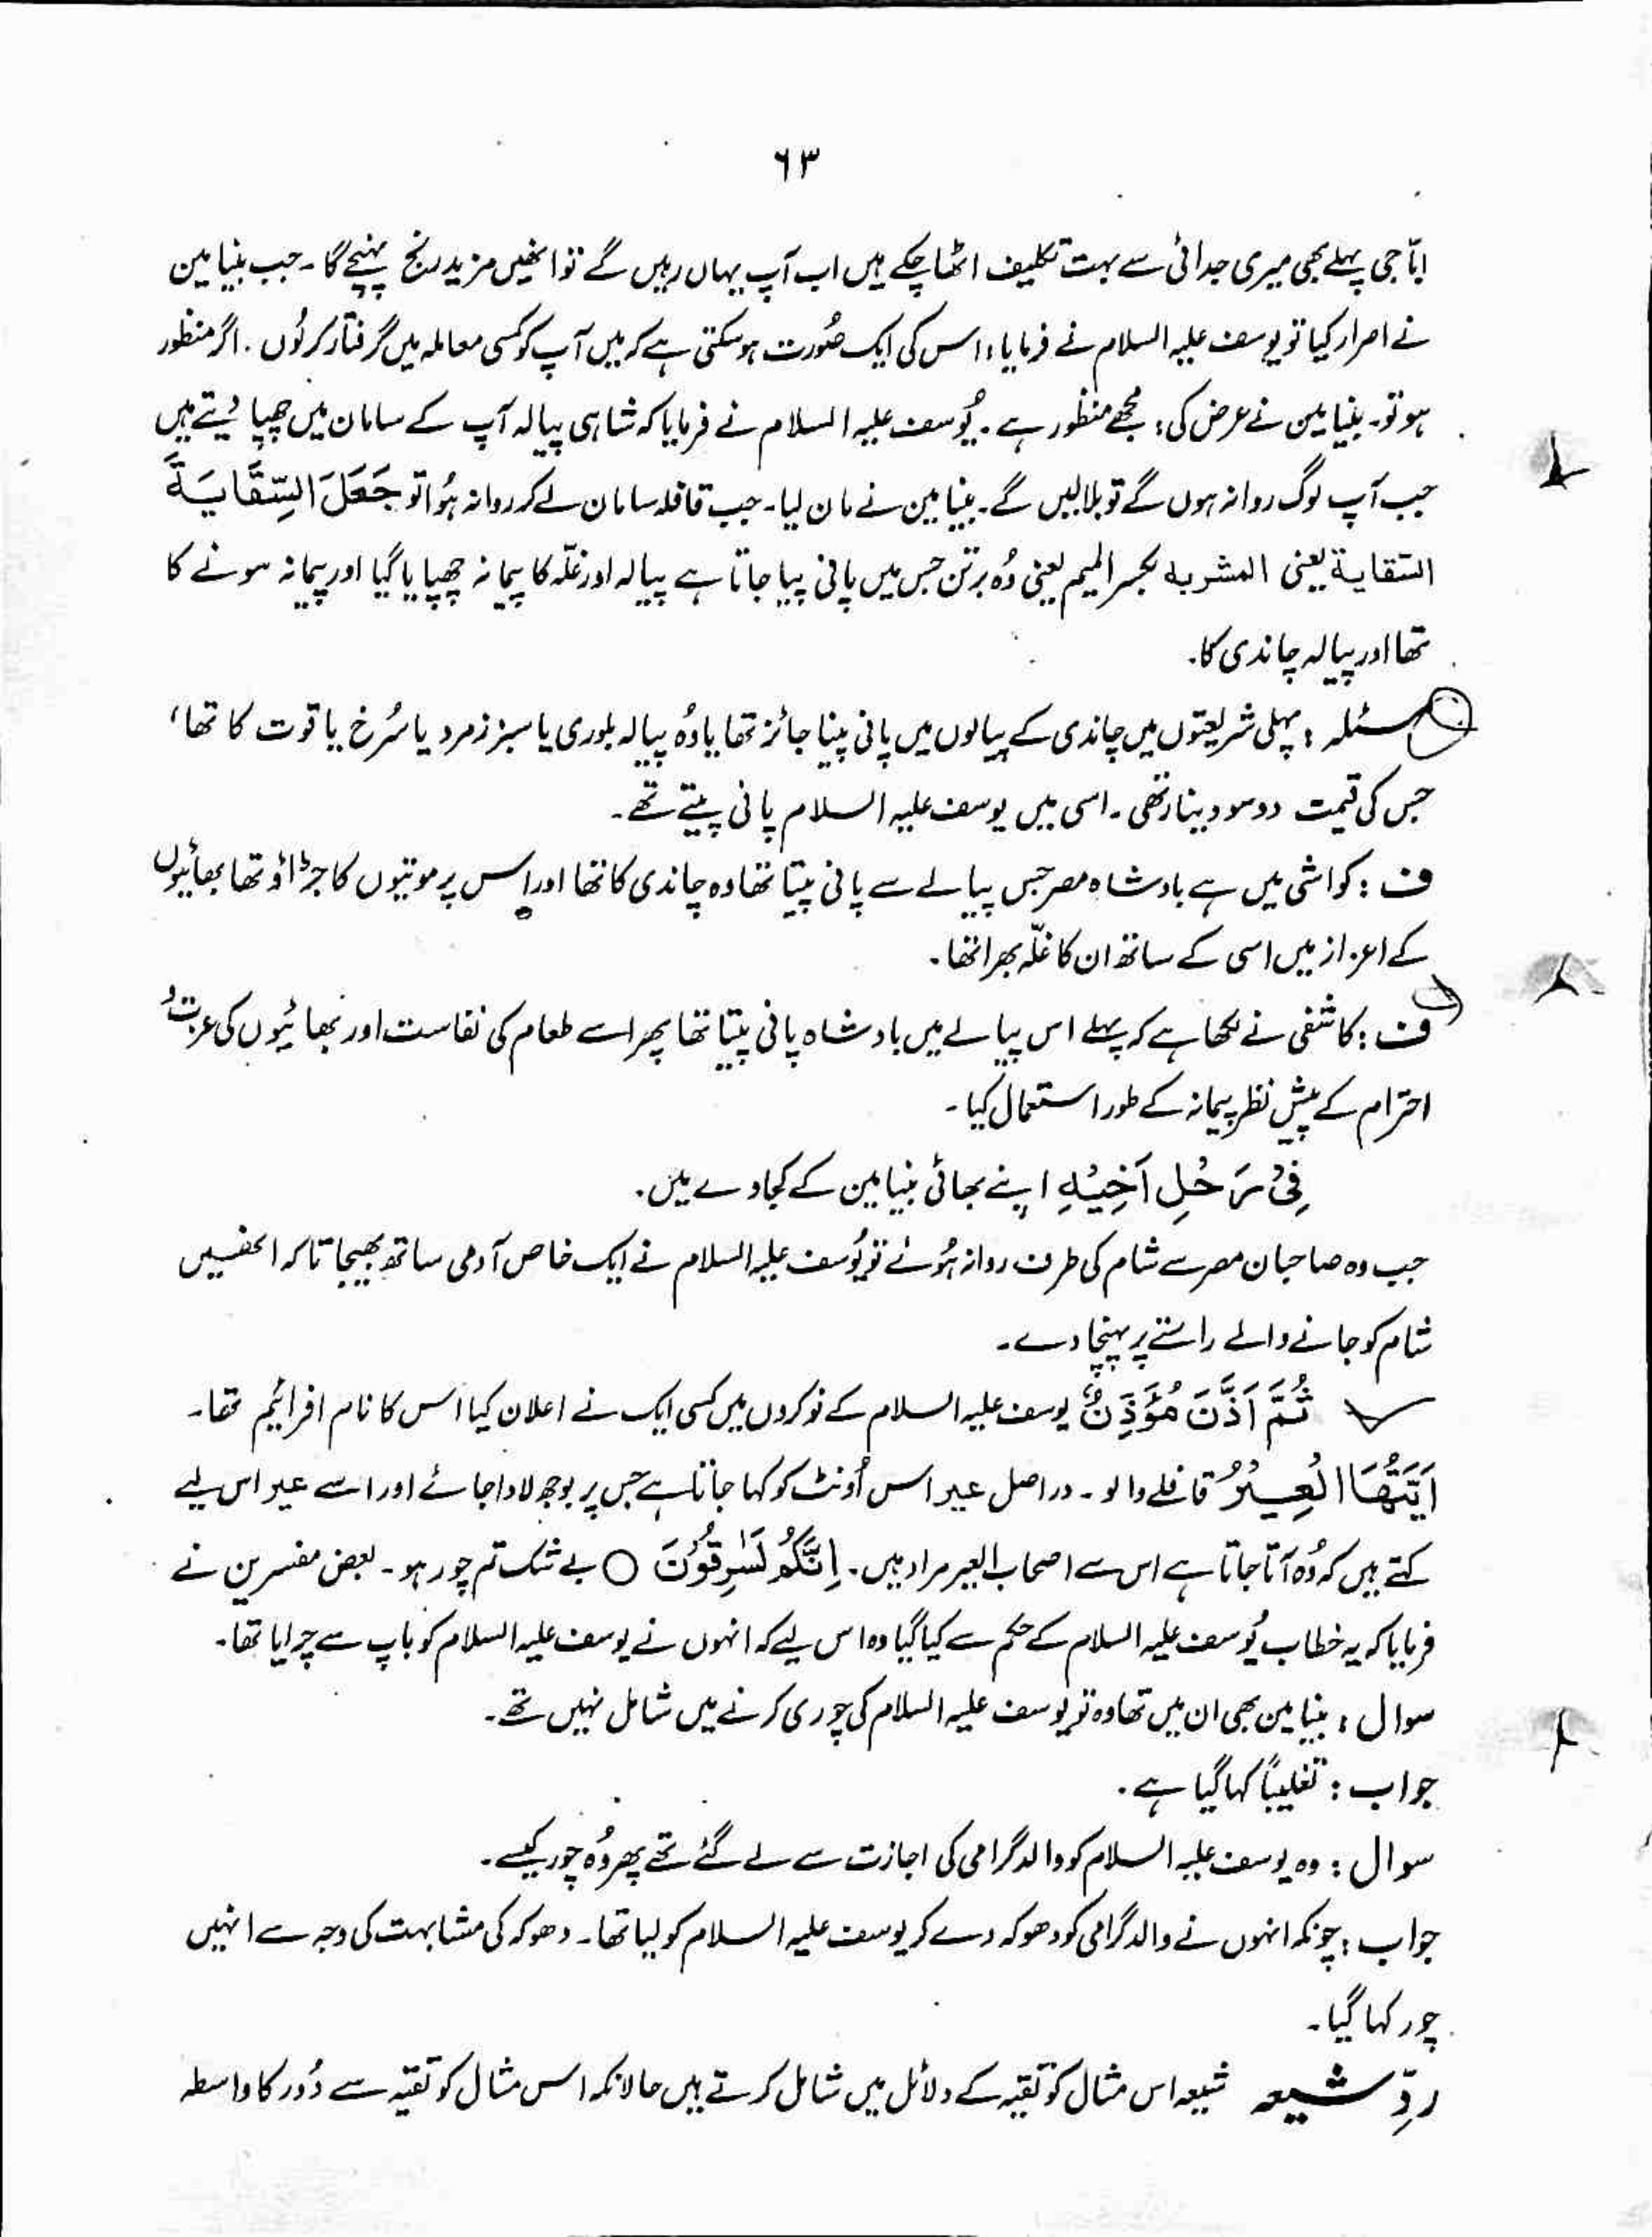 ٦٣
ابّا جی پہلے بھی میری جدائی سے بہت تکلیف اٹھا چکے ہیں اب آپ یہاں رہیں گے تو انھیں مزید رنج پہنچے گا۔ جب بنیامین
نے اصرار کیا تو یوسف علیہ السلام نے فرمایا، اس کی ایک صُورت ہوسکتی ہے کہ میں آپ کو کسی معاملہ میں گرفتار کرلُوں۔ اگر منظور
ہو تو۔ بنیامین نے عرض کی: مجھے منظور ہے۔ یُوسف علیہ السلام نے فرمایا کہ شاہی پیالہ آپ کے سامان میں چھپا دیتے ہیں
جب آپ لوگ روانہ ہوں گے تو بلالیں گے۔ بنیامین نے مان لیا۔ جب قافلہ سامان لے کر روانہ ہُوا تو جَعَلَ السِّقَايَةَ
السّقایۃ یعنی المشربہ بکسر المیم یعنی وُہ برتن جس میں پانی پیا جاتا ہے پیالہ اور غلّہ کا پیمانہ چھپایا گیا اور پیمانہ سونے کا
تھا اور پیالہ چاندی کا۔
مسئلہ : پہلی شریعتوں میں چاندی کے پیالوں میں پانی پینا جائز تھا یا وُہ پیالہ بلوری یا سبز زمرد یا سُرخ یاقوت کا تھا،
جس کی قیمت دوسو دینار تھی۔ اسی میں یوسف علیہ السلام پانی پیتے تھے۔
ف : کواشی میں ہے بادشاہ مصر جس پیالے سے پانی پیتا تھا وہ چاندی کا تھا اور اس پر موتیوں کا جڑاؤ تھا بھائیوں
کے اعزاز میں اسی کے ساتھ ان کا غلّہ بھرا تھا۔
ف : کاشفی نے لکھا ہے کہ پہلے اس پیالے میں بادشاہ پانی پیتا تھا پھر اسے طعام کی نفاست اور بھائیوں کی عزت و
احترام کے پیش نظر پیمانہ کے طور استعمال کیا۔
فِیْ رَحْلِ اَخِیْهِ اپنے بھائی بنیامین کے کجاوے میں۔
جب وہ صاحبان مصر سے شام کی طرف روانہ ہُوئے تو یُوسف علیہ السلام نے ایک خاص آدمی ساتھ بھیجا تاکہ انھیں
شام کو جانے والے راستے پر پہنچا دے۔
ثُمَّ اَذَّنَ مُؤَذِّنٌ یوسف علیہ السلام کے نوکروں میں کسی ایک نے اعلان کیا اس کا نام افرائیم تھا۔
اَیَّتُهَا الْعِیْرُ قافلے والو۔ دراصل عیر اس اُونٹ کو کہا جاتا ہے جس پر بوجھ لادا جائے اور اسے عیر اس لیے
کہتے ہیں کہ وُہ آتا جاتا ہے اس سے اصحاب العیر مراد ہیں۔ اِنَّكُمْ لَسٰرِقُوْنَ ○ بے شک تم چور ہو۔ بعض مفسرین نے
فرمایا کہ یہ خطاب یُوسف علیہ السلام کے حکم سے کیا گیا وہ اس لیے کہ انہوں نے یوسف علیہ السلام کو باپ سے چرایا تھا۔
سوال : بنیامین بھی ان میں تھا وہ تو یوسف علیہ السلام کی چوری کرنے میں شامل نہیں تھے۔
جواب : تغلیباً کہا گیا ہے۔
سوال : وہ یوسف علیہ السلام کو والد گرامی کی اجازت سے لے گئے تھے پھر وُہ چور کیسے۔
جواب : چونکہ انہوں نے والد گرامی کو دھوکہ دے کر یوسف علیہ السلام کو لیا تھا۔ دھوکہ کی مشابہت کی وجہ سے انہیں
چور کہا گیا۔
ردِّ شیعہ شیعہ اس مثال کو تقیہ کے دلائل میں شامل کرتے ہیں حالانکہ اس مثال کو تقیہ سے دُور کا واسطہ